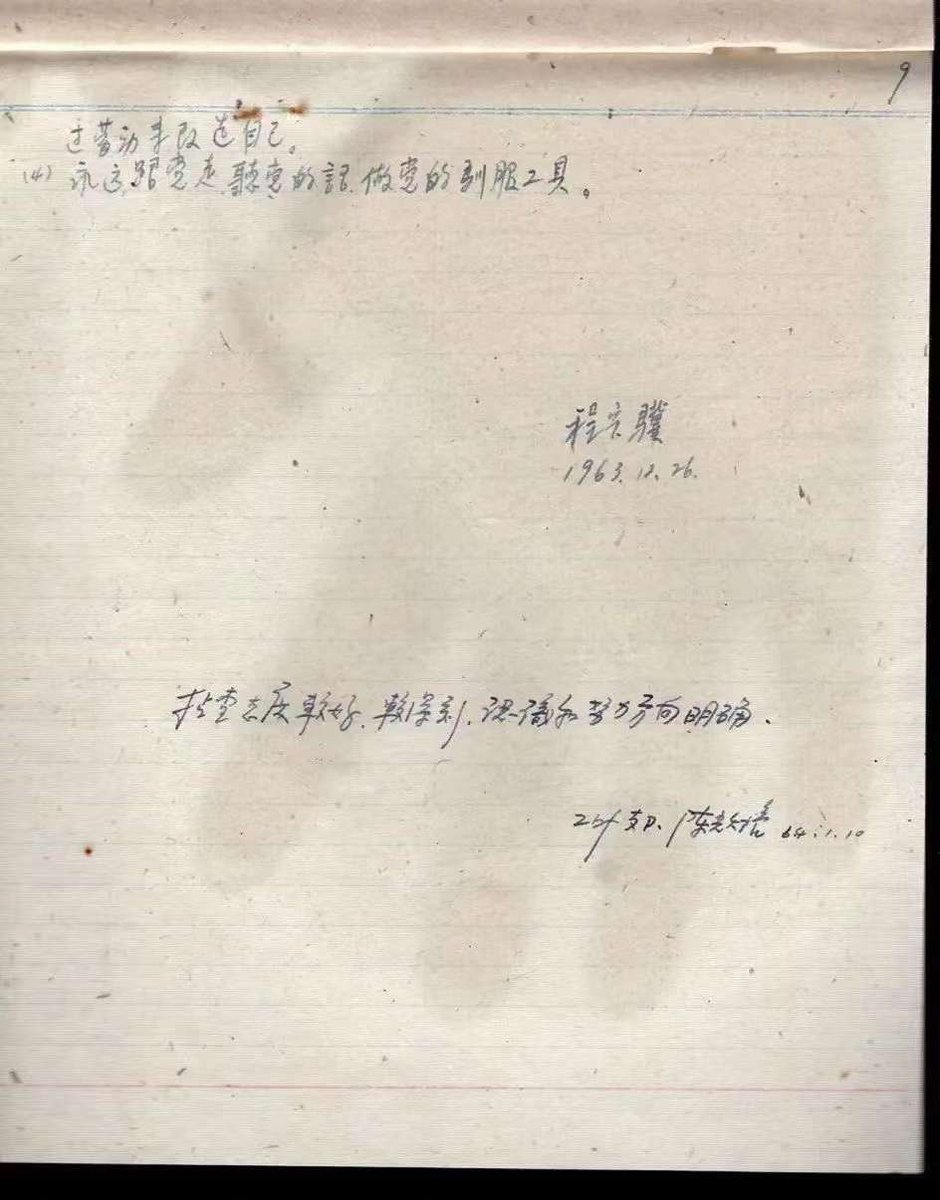 9
过劳动来改造自己。
(4) 永远跟党走,聽党的話,做党的驯服工具。
程宏骥
1963.12.26.
检查态度较好、较深刻,認識和努力方向明确.
支部. 陈 64.1.10